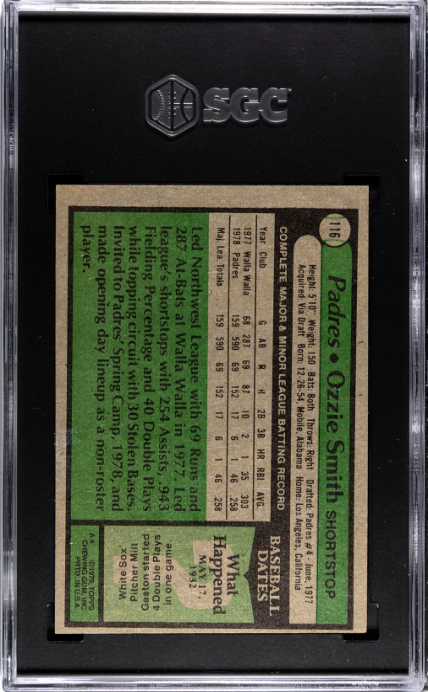 SGC
116
Padres • Ozzie Smith SHORTSTOP
Height: 5'10" Weight: 150 Bats: Both Throws: Right Drafted: Padres #4 - June, 1977
Acquired: Via Draft Born: 12-26-54, Mobile, Alabama Home: Los Angeles, California
COMPLETE MAJOR & MINOR LEAGUE BATTING RECORD
Year Club G AB R H 2B 3B HR RBI AVG.
1977 Walla Walla 68 287 69 87 10 2 1 35 .303
1978 Padres 159 590 69 152 17 6 1 46 .258
Maj. Lea. Totals 159 590 69 152 17 6 1 46 .258
Led Northwest League with 69 Runs and
287 At-Bats at Walla Walla in 1977. Led
league's shortstops with 254 Assists, .943
Fielding Percentage and 40 Double Plays
while topping circuit with 30 Stolen Bases.
Invited to Padres' Spring Camp, 1978, and
made opening day lineup as a non-roster
player.
BASEBALL
DATES
What
Happened
MAY 17,
1932
White Sox
Pitcher Milt
Gaston started
4 Double Plays
in one game.
©1979 TOPPS
CHEWING GUM, INC.
PRTD. IN U.S.A.